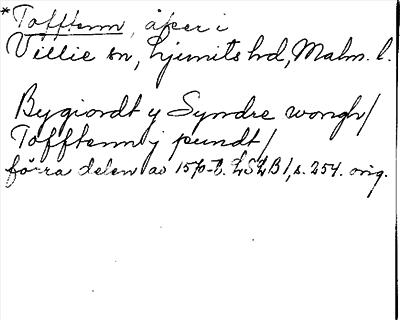 *Tofftenn, åker i
Villie sn, Ljunits hd, Malm. l.
Bygiordt y Syndre wongh/
Tofftenn j pundt/
förra delen av 1570-t. LSLB 1, s. 254. orig.